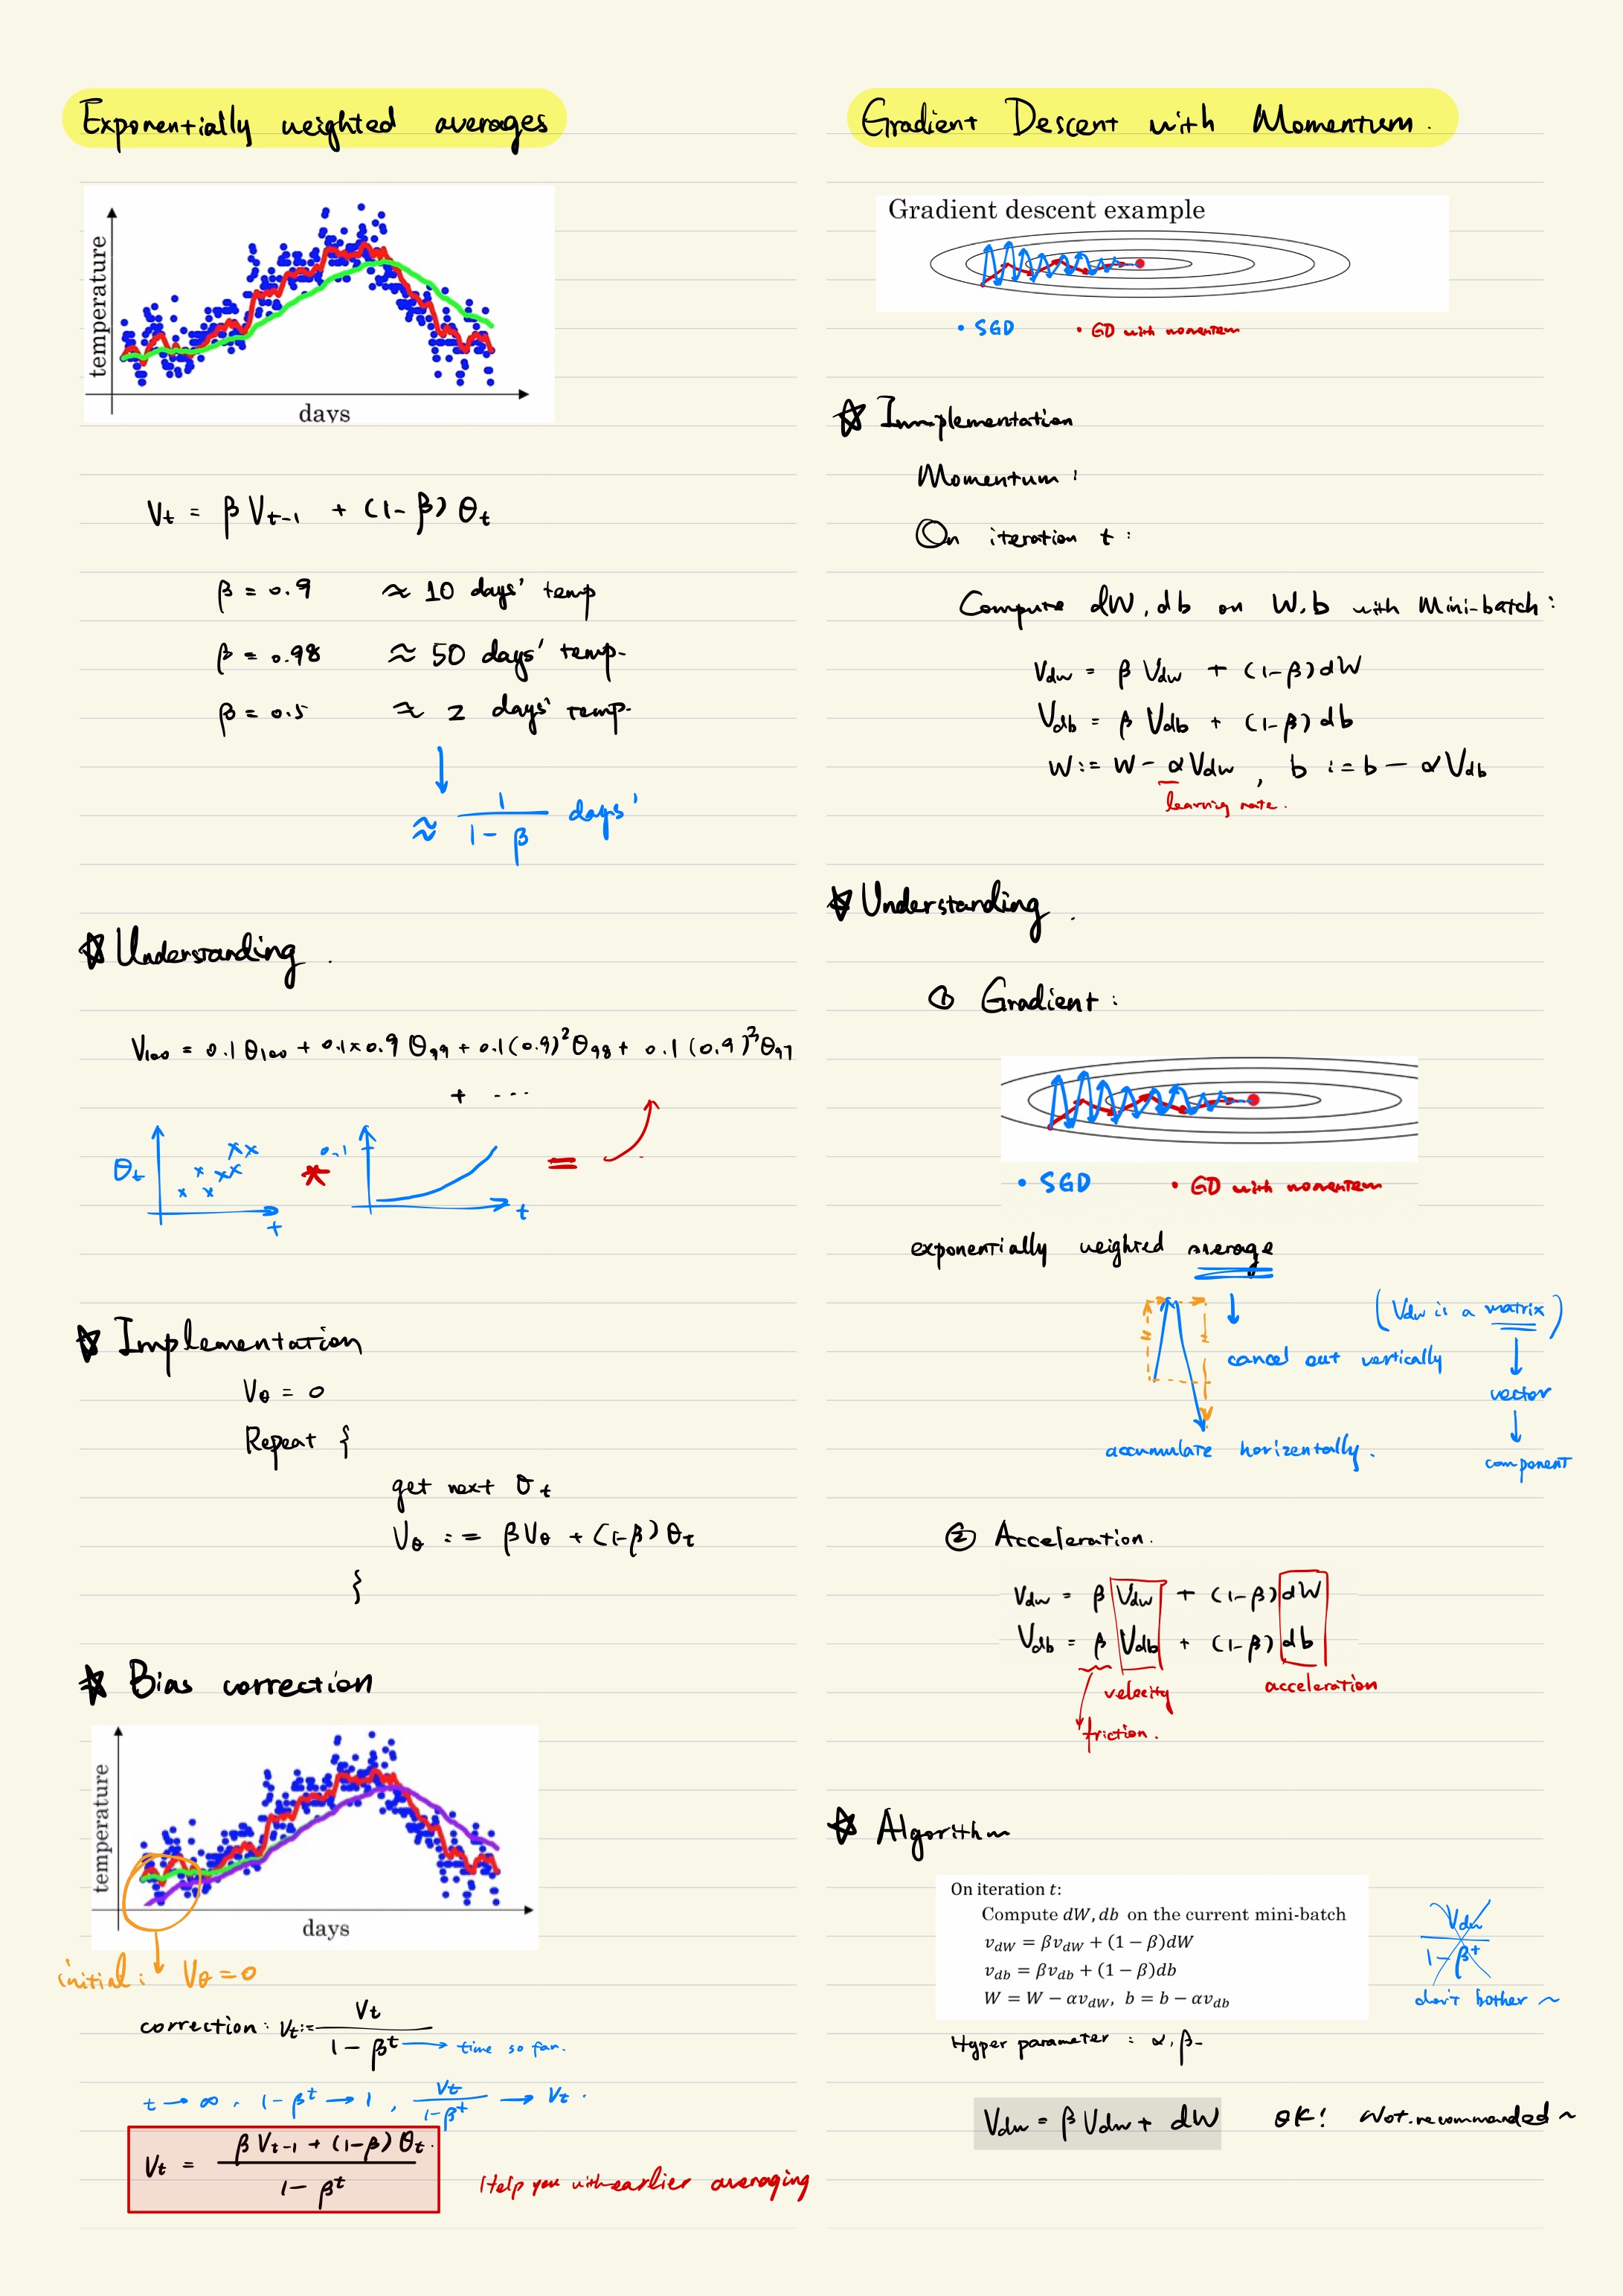 Exponentially weighted averages
temperature
days
Vt = β Vt-1 + (1-β) θt
β = 0.9 ≈ 10 days' temp
β = 0.98 ≈ 50 days' temp.
β = 0.5 ≈ 2 days' temp.
≈ 1 / (1-β) days'
☆ Understanding.
V100 = 0.1 θ100 + 0.1×0.9 θ99 + 0.1(0.9)² θ98 + 0.1(0.9)³ θ97
+ ...
θt
t
*
0.1
t
=
☆ Implementation
Vθ = 0
Repeat {
get next θt
Vθ := βVθ + (1-β)θt
}
☆ Bias correction
temperature
days
initial: Vθ=0
correction: Vt:= Vt / (1-β^t) → time so far.
t → ∞, 1-β^t → 1, Vt / (1-β^t) → Vt.
Vt = (βVt-1 + (1-β)θt) / (1-β^t)
Help you with earlier averaging
Gradient Descent with Momentum.
Gradient descent example
• SGD • GD with momentum
☆ Immplementation
Momentum:
On iteration t:
Compute dW, db on W, b with Mini-batch:
Vdw = β Vdw + (1-β)dW
Vdb = β Vdb + (1-β)db
W := W - αVdw, b := b - αVdb
learning rate.
☆ Understanding.
① Gradient:
• SGD • GD with momentum
exponentially weighted average
(Vdw is a matrix)
cancel out vertically
vector
accumulate horizontally.
component
② Acceleration.
Vdw = β Vdw + (1-β)dW
Vdb = β Vdb + (1-β)db
velocity acceleration
friction.
☆ Algorithm
On iteration t:
Compute dW, db on the current mini-batch
vdW = βvdW + (1 − β)dW
vdb = βvdb + (1 − β)db
W = W − αvdW, b = b − αvdb
Vdw / (1-β^t)
don't bother ~
Hyper parameter: α, β.
Vdw = β Vdw + dW OK! Not recommanded ~